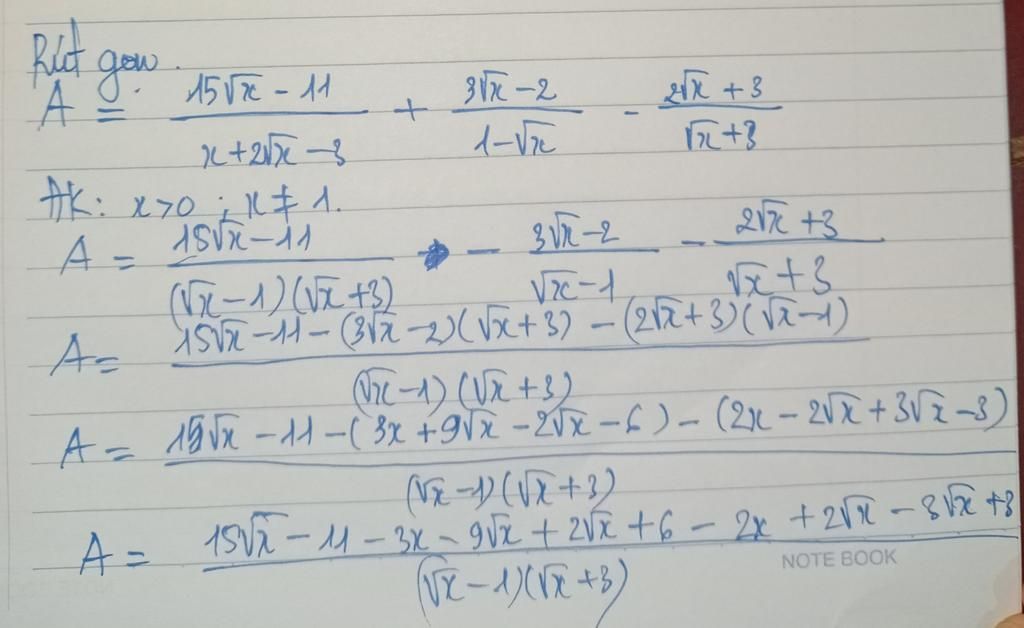 Rút gọn.
A = (15√x - 11)/(x + 2√x - 3) + (3√x - 2)/(1 - √x) - (2√x + 3)/(√x + 3)
ĐK: x > 0 ; x ≠ 1.
A = (15√x - 11)/((√x - 1)(√x + 3)) - (3√x - 2)/(√x - 1) - (2√x + 3)/(√x + 3)
A = (15√x - 11 - (3√x - 2)(√x + 3) - (2√x + 3)(√x - 1))/((√x - 1)(√x + 3))
A = (15√x - 11 - (3x + 9√x - 2√x - 6) - (2x - 2√x + 3√x - 3))/((√x - 1)(√x + 3))
A = (15√x - 11 - 3x - 9√x + 2√x + 6 - 2x + 2√x - 3√x + 3)/((√x - 1)(√x + 3))
NOTE BOOK